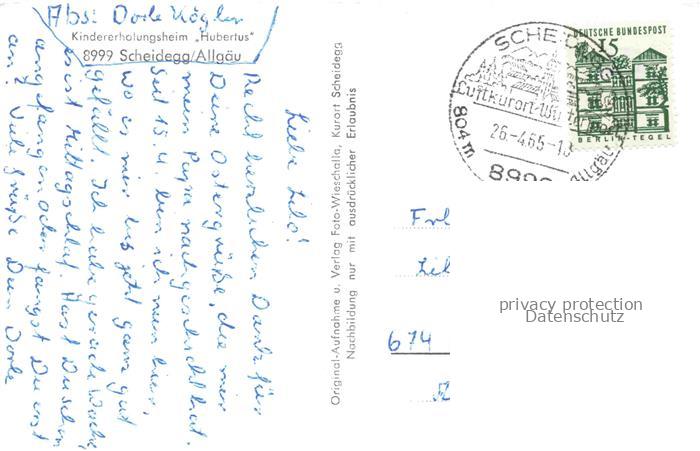 Abs: Dorle Kögler
Kindererholungsheim „Hubertus"
8999 Scheidegg/Allgäu
Liebe Lilo!
Recht herzlichen Dank für
Deine Ostergrüße, die mir
mein Papa nachgeschickt hat.
Seit 15.4. bin ich nun hier,
wo es mir bis jetzt ganz gut
gefällt. Ich habe gerade Woche,
es ist Mittagschlaf. Hast Du schon
angefangen oder fängst Du erst
an? Viele Grüße Deine Dorle
Original-Aufnahme u. Verlag Foto-Wieschalla, Kurort Scheidegg
Nachbildung nur mit ausdrücklicher Erlaubnis
DEUTSCHE BUNDESPOST
15
BERLIN-TEGEL
26.-4.65-
804 m
Frl
Lil
674
privacy protection
Datenschutz